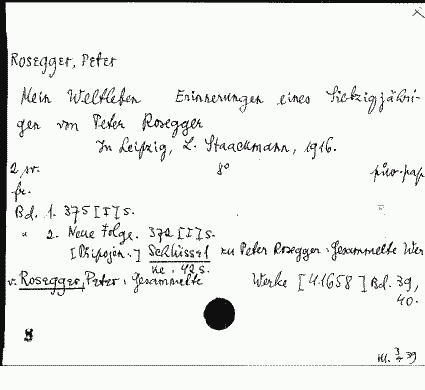 Rosegger, Peter
Mein Weltleben Erinnerungen eines Siebzigjähri-
gen von Peter Rosegger
In Leipzig, L. Staackmann, 1916.
2 sv. 8°
br.
Bd. 1. 375 [I] S.
" 2. Neue Folge. 372 [I] S.
Schlüssel zu Peter Rosegger: Gesammelte Wer
ke. 42 S.
v. Rosegger, Peter: Gesammelte Werke [41658] Bd. 39,
40.
8